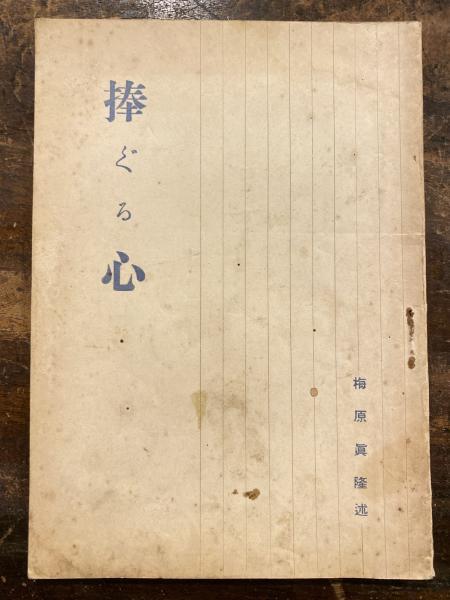 捧ぐる心
梅原眞隆述